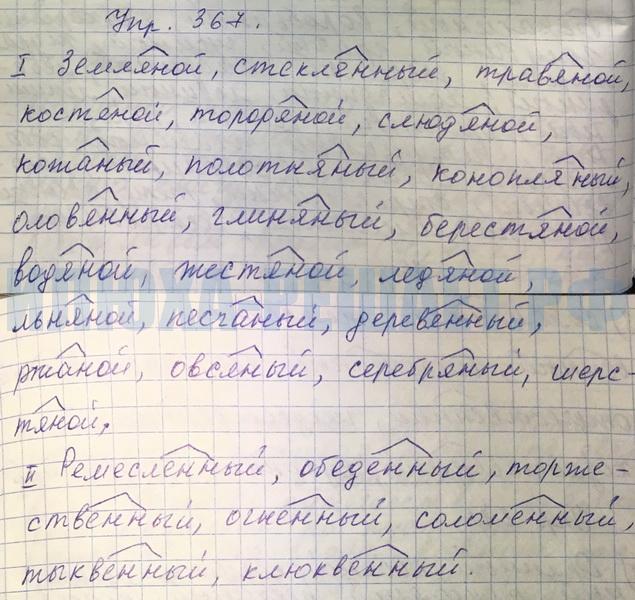 Упр. 367.
I Земляной, стеклянный, травяной,
костяной, торфяной, слюдяной,
кожаный, полотняный, конопляный,
оловянный, глиняный, берестяной,
водяной, жестяной, ледяной,
льняной, песчаный, деревянный,
ржаной, овсяный, серебряный, шерс-
тяной.
II Ремесленный, обеденный, торже-
ственный, огненный, соломенный,
тыквенный, клюквенный.